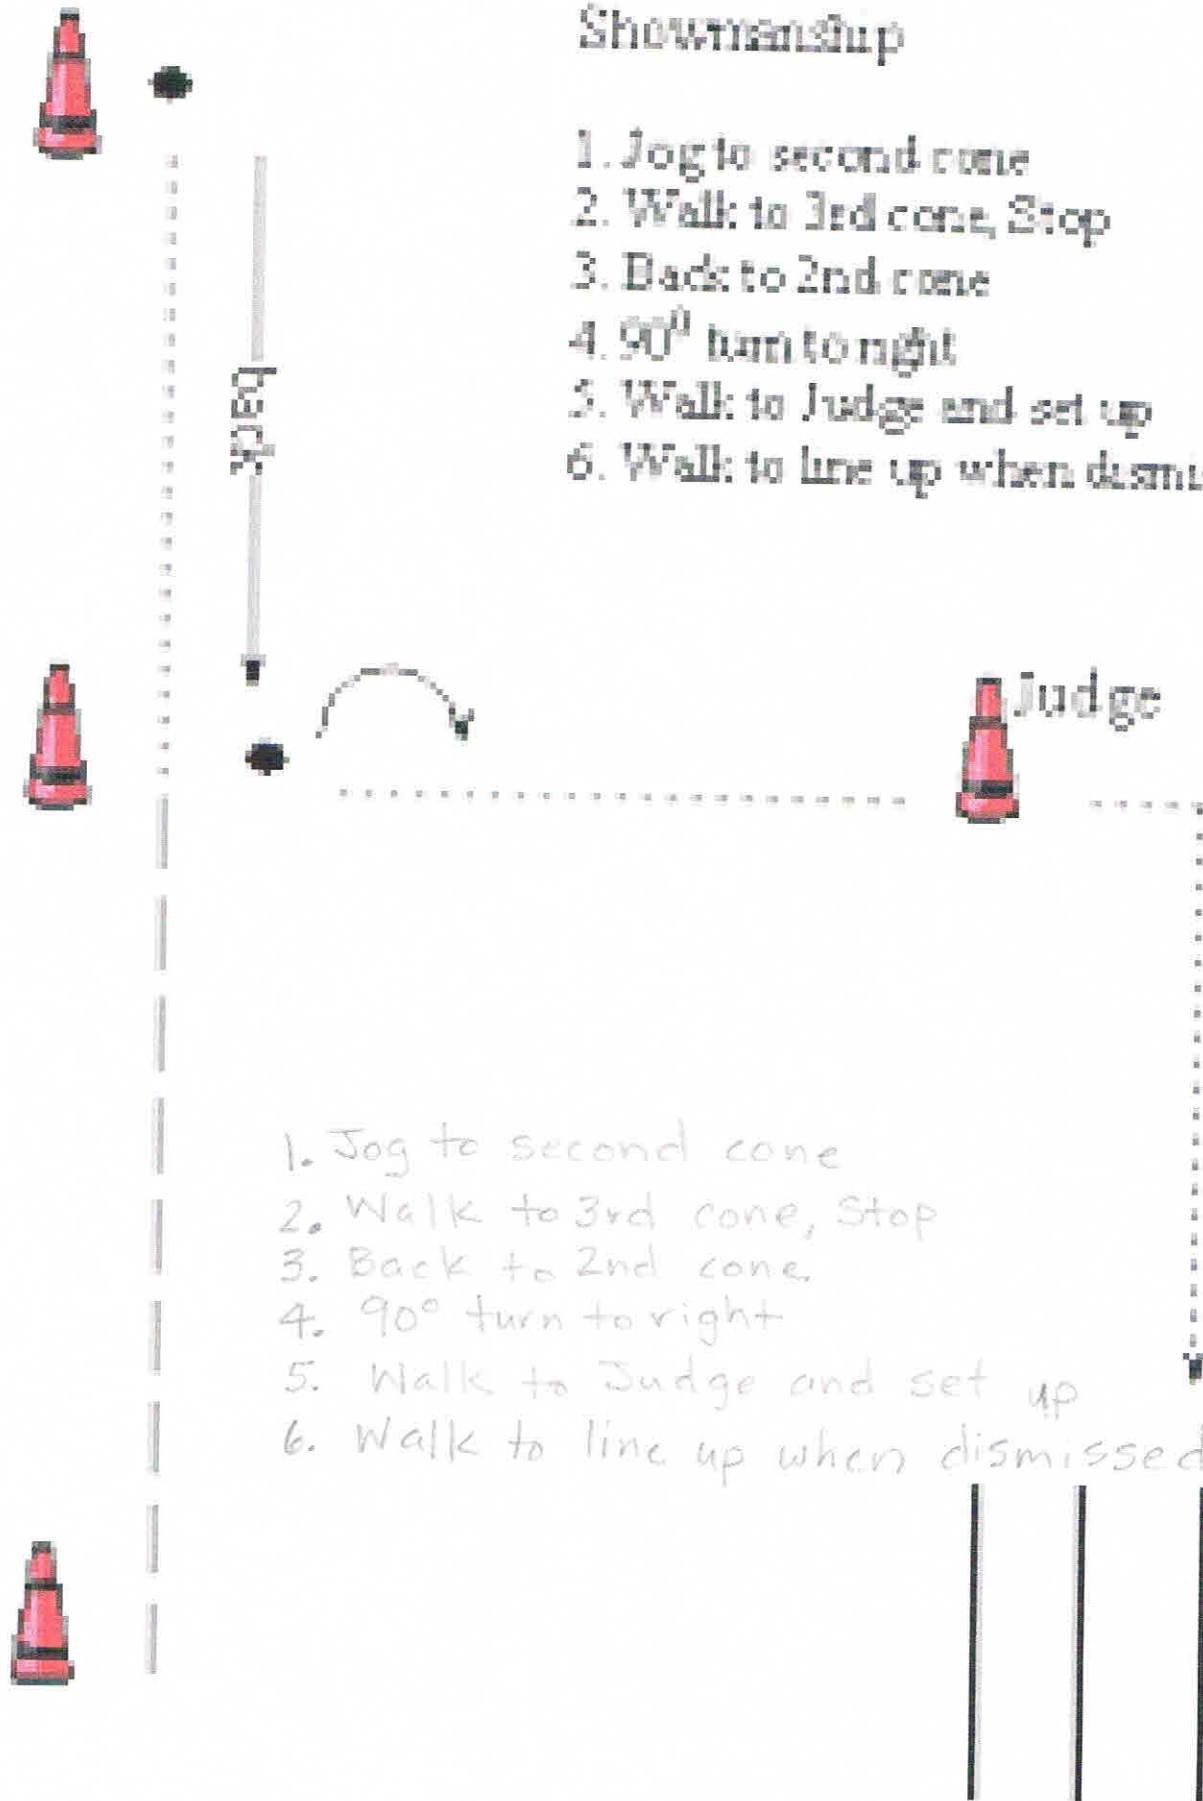 Showmanship
1. Jog to second cone
2. Walk to 3rd cone, Stop
3. Back to 2nd cone
4. 90⁰ turn to right
5. Walk to Judge and set up
6. Walk to line up when dismis
back
Judge
1. Jog to second cone
2. Walk to 3rd cone, Stop
3. Back to 2nd cone.
4. 90° turn to right
5. Walk to Judge and set up
6. Walk to line up when dismissed